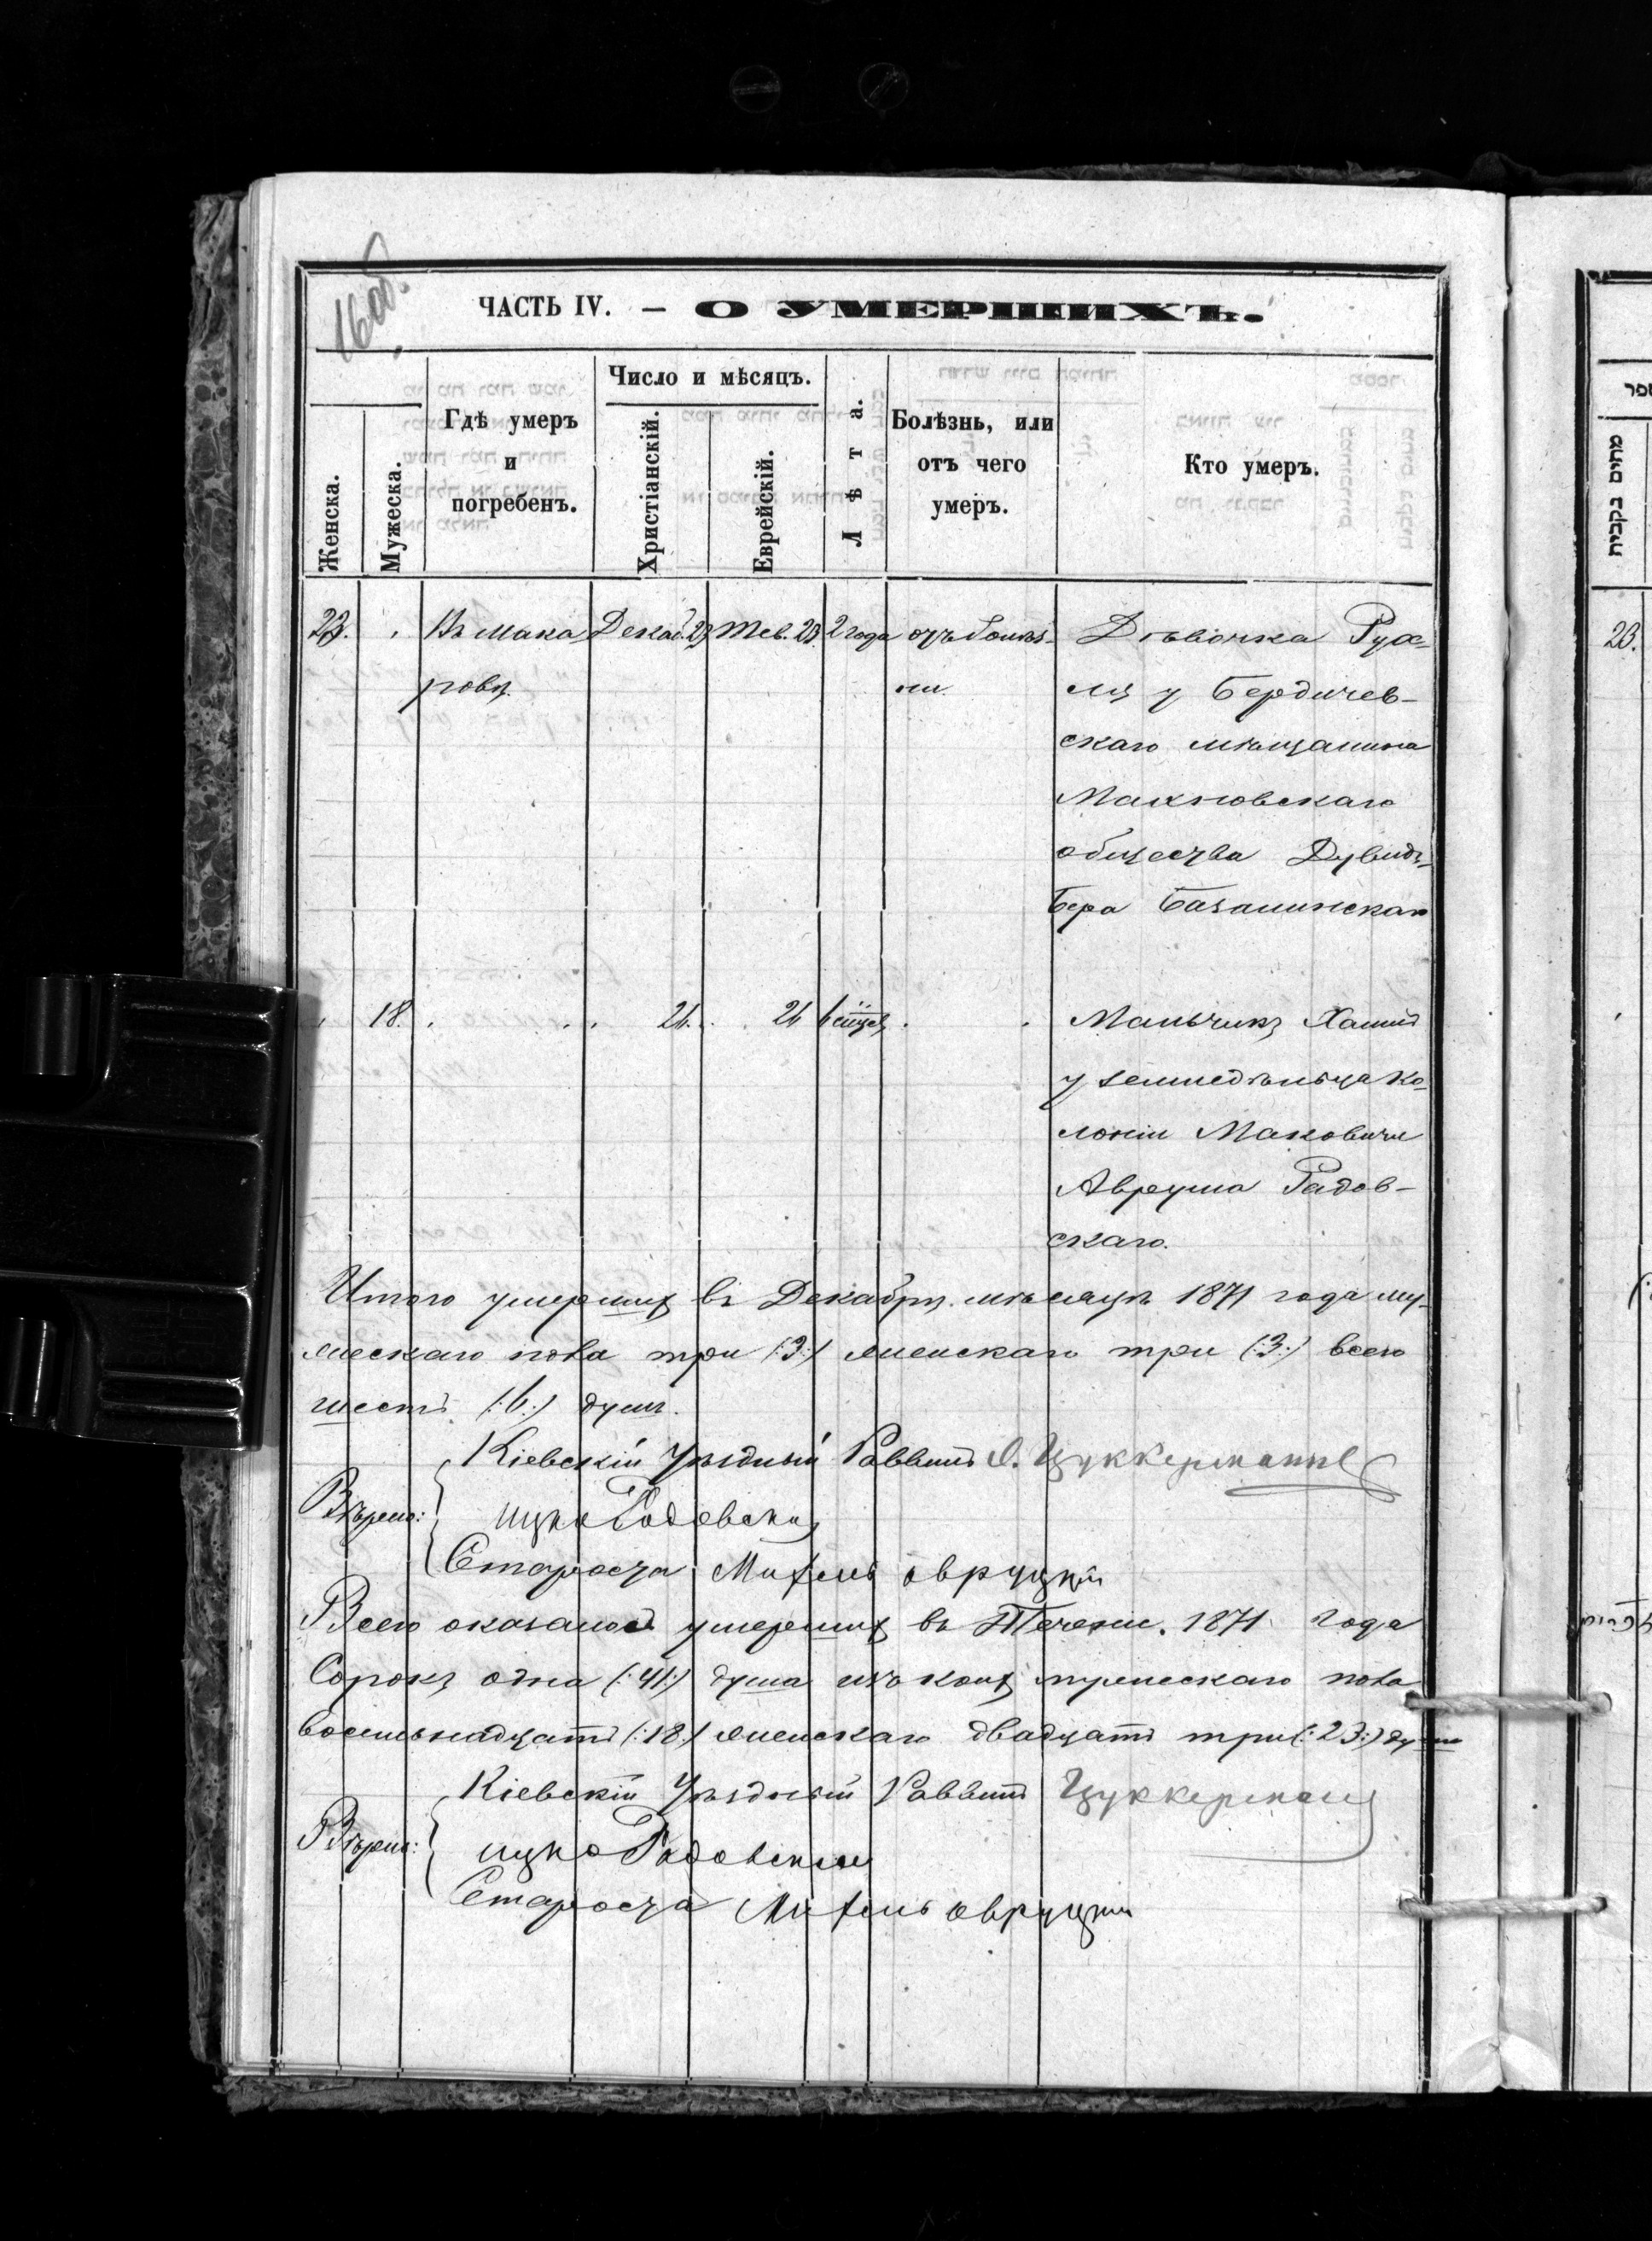 16 об.
ЧАСТЬ IV. — О УМЕРШИХЪ.
Женска.
Мужеска.
Гдѣ умеръ
и
погребенъ.
Число и мѣсяцъ.
Христіанскій.
Еврейскій.
Лѣта.
Болѣзнь, или
отъ чего
умеръ.
Кто умеръ.
23. Въ Мака Декаб. 23 Тев. 23. 2 года отъ болѣз- Дѣвочка Рух-
ровѣ. ни. ля у Бердичев-
скаго мѣщанина
Махновскаго
общества Дувидъ-
Бера Базалинскаго
18. 26. 26 6 мѣсяцев Мальчикъ Хаимъ
у земледѣльца ко-
лоніи Маковичи
Аврума Радов-
скаго.
Итого умершихъ въ Декабрѣ мѣсяцѣ 1871 года му-
жескаго пола три (:3:) женскаго три (:3:) всего
шесть (:6:) душъ.
Кіевскій Уѣздный Раввинъ О. Цуккерманъ
Вѣрно: Ицко Радовский
Староста Михель Овруцкій
Всего оказалось умершихъ въ Теченіи 1871 года
Сорокъ одна (:41:) душа изъ коихъ мужескаго пола
восемьнадцать (:18:) женскаго двадцать три (:23:) душъ
Кіевскій Уѣздный Раввинъ Цуккерманъ
Вѣрно: Ицко Радовский
Староста Михель Овруцкій
מתים נקבות
23.